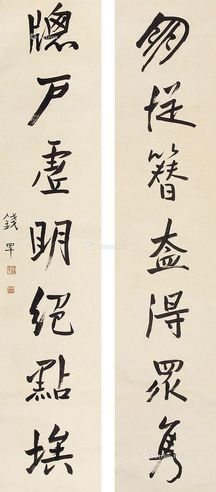 朋從簪盍得眾隽
牕戶虛明絕點埃
錢罕